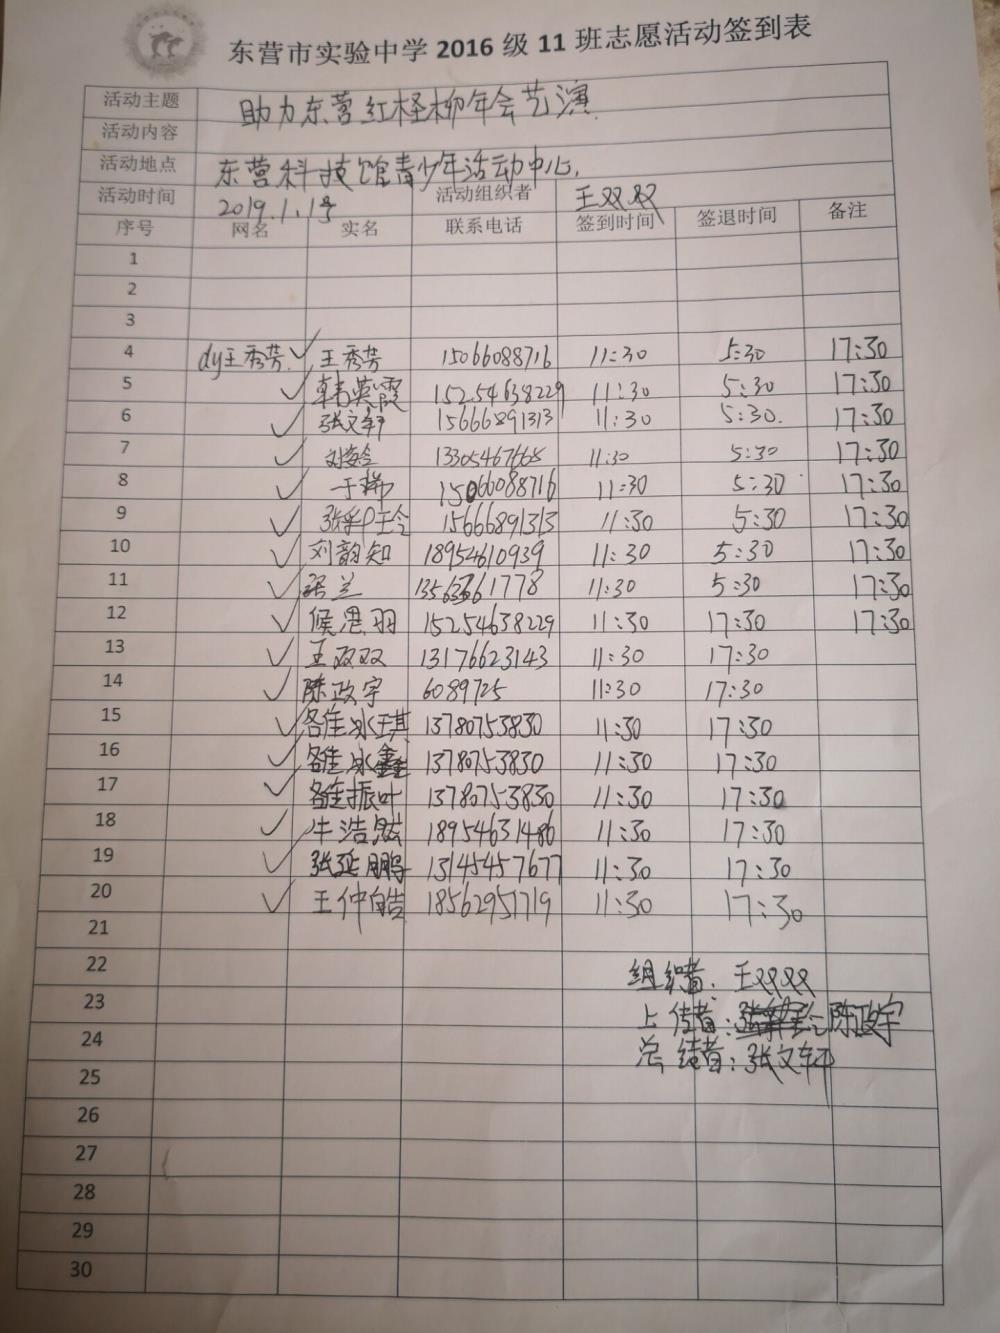 东营市实验中学 2016 级 11 班志愿活动签到表
活动主题 助力东营红柽柳年会艺演
活动内容
活动地点 东营科技馆青少年活动中心.
活动时间 2019.1.1号 活动组织者 王双双
序号 网名 实名 联系电话 签到时间 签退时间 备注
1
2
3
4 dy王秀芳. ✓ 王秀芳 15066088716 11:30 5:30 17:30
5 ✓ 韩英霞 15254638229 11:30 5:30 17:30
6 ✓ 张文轩 15666891313 11:30 5:30. 17:30
7 ✓ 11:30 5:30 17:30
8 ✓ 15066088716 11:30 5:30 17:30
9 ✓ 15666891313 11:30 5:30 17:30
10 ✓ 刘韵知 18954610939 11:30 5:30 17:30
11 ✓ 11:30 5:30 17:30
12 ✓ 15254638229 11:30 17:30 17:30
13 ✓ 王双双 13176623143 11:30 17:30
14 ✓ 陈政宇 6089725 11:30 17:30
15 ✓ 昝冰琪 13780753830 11:30 17:30
16 ✓ 13780753830 11:30 17:30
17 ✓ 13780753830 11:30 17:30
18 ✓ 牛浩然 18954631486 11:30 17:30
19 ✓ 张延鹏 13145457677 11:30 17:30
20 ✓ 王仲皓 18562951719 11:30 17:30
21
22 组织者. 王双双
23 上传者: 陈政宇
24 总结者: 张文轩
25
26
27
28
29
30